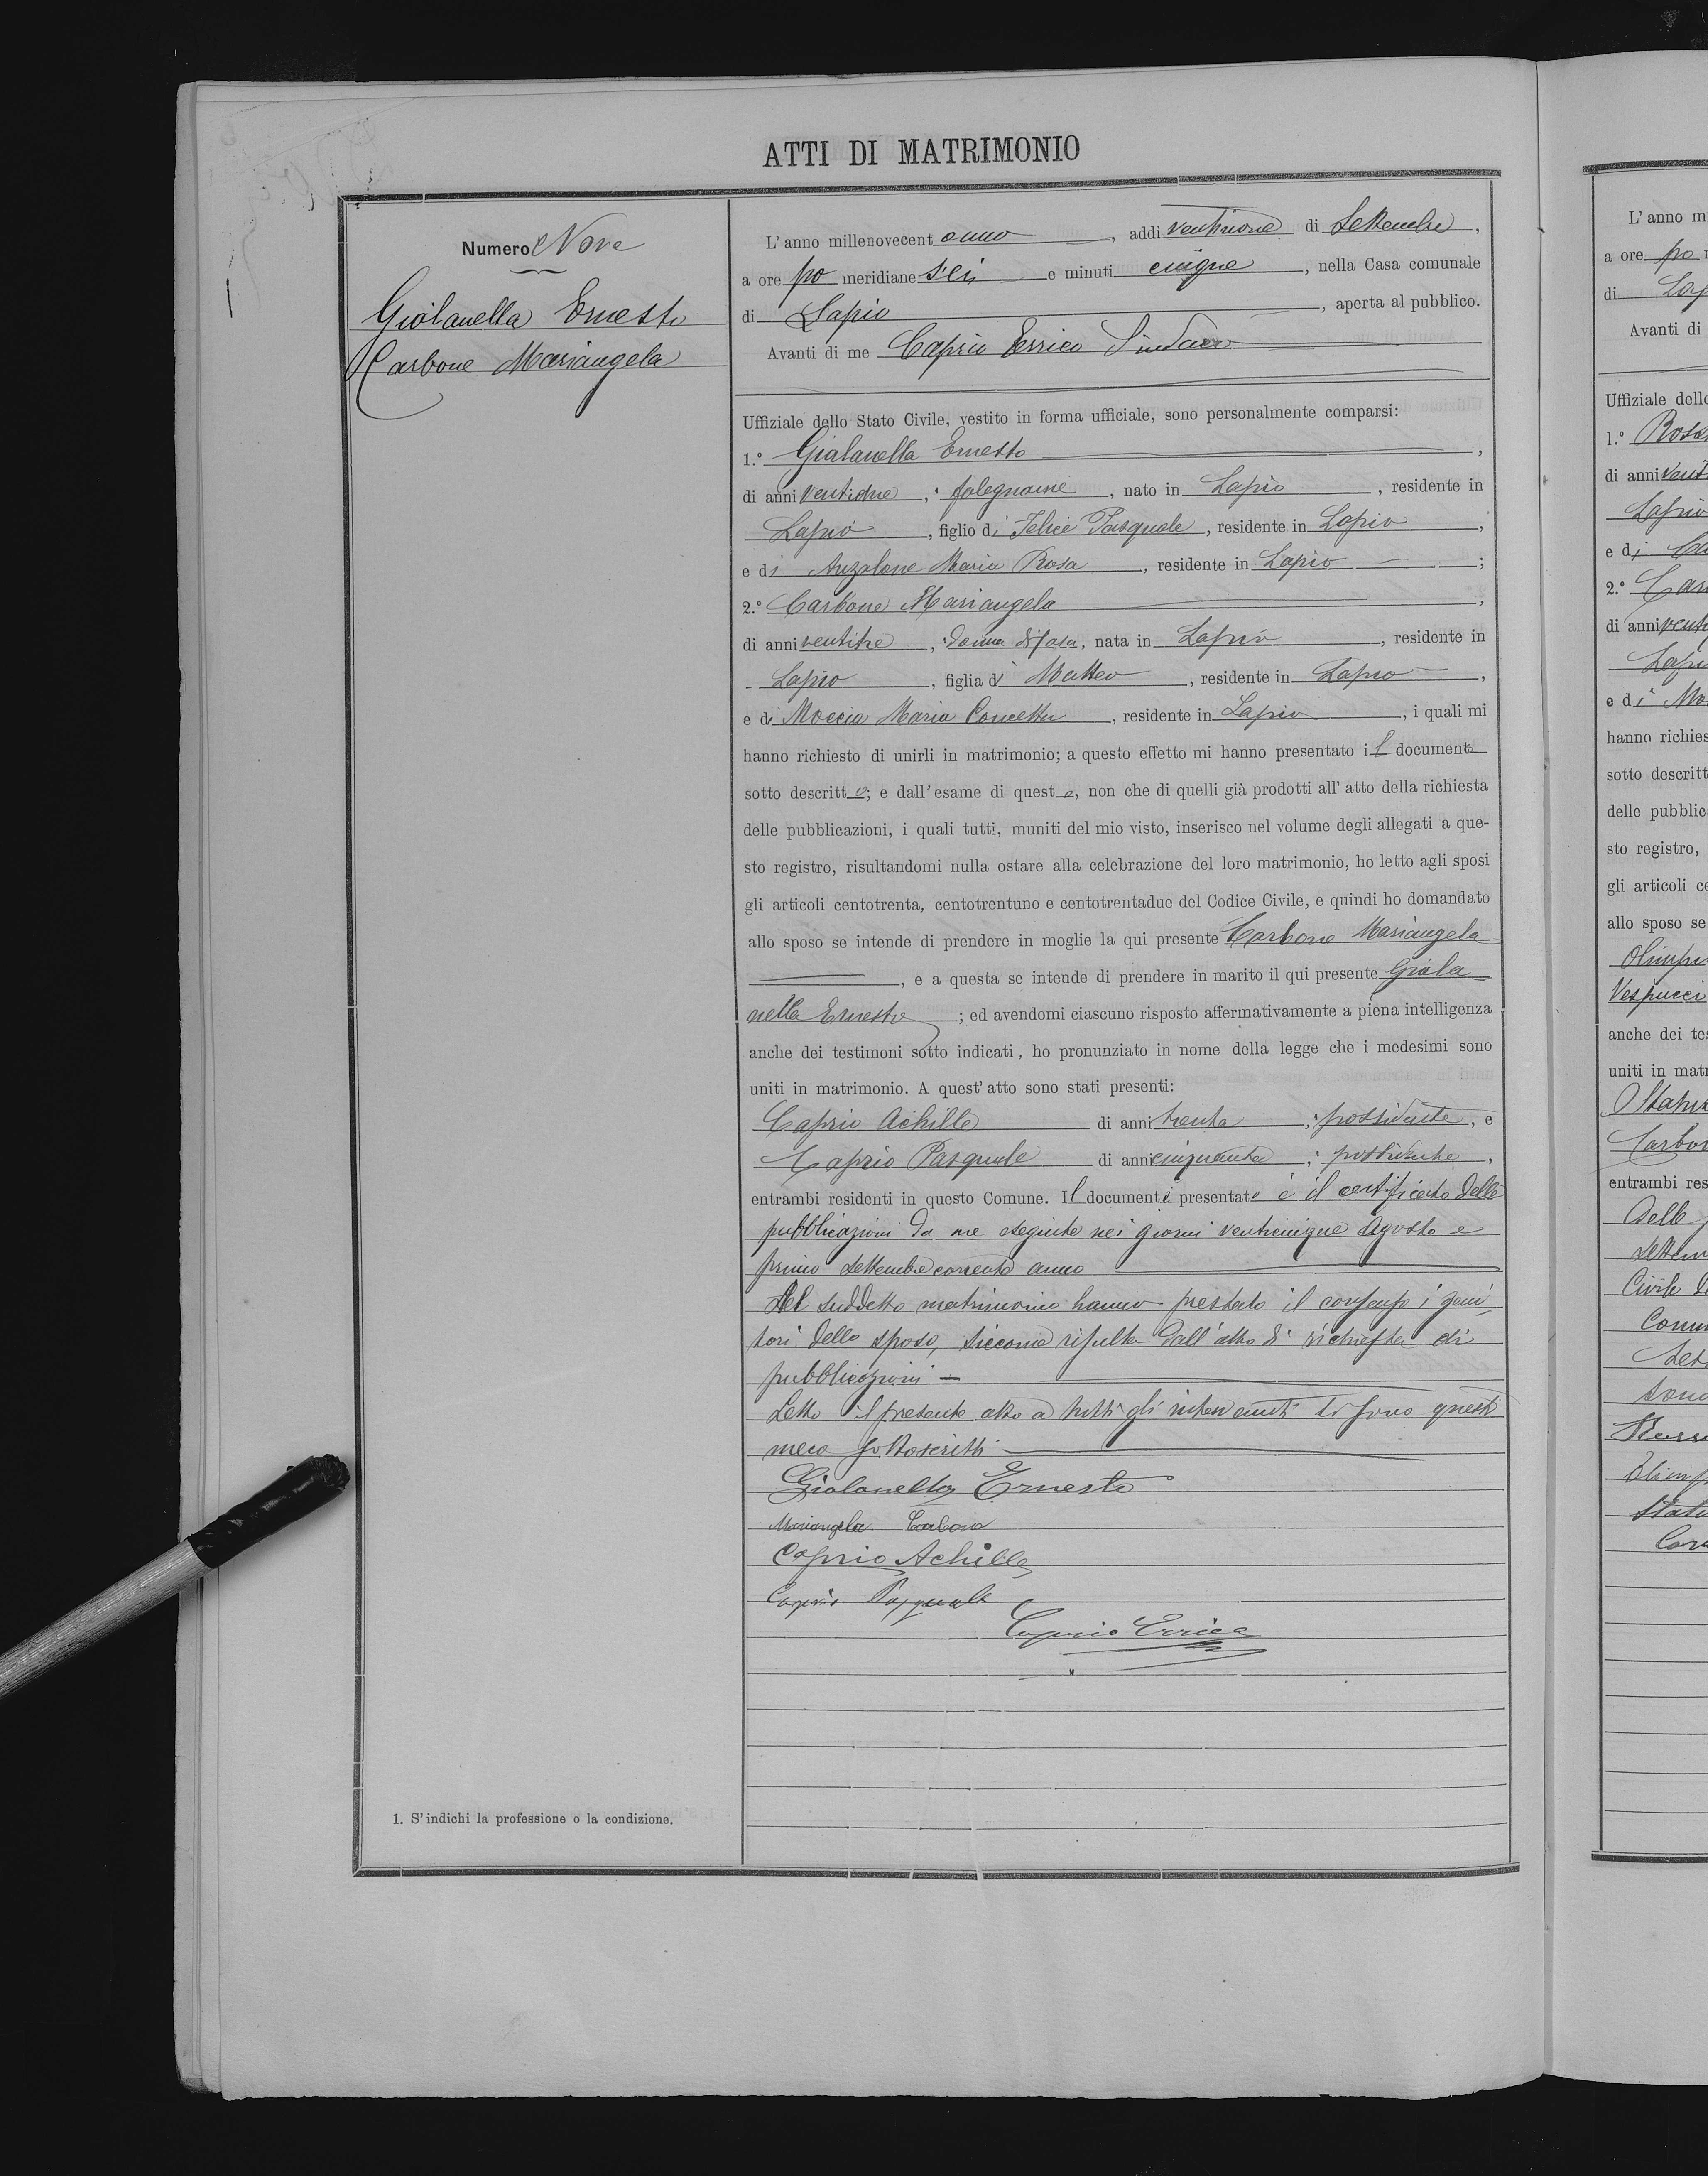 ATTI DI MATRIMONIO
Numero Nove
Gialanella Ernesto
Carbone Mariangela
1. S' indichi la professione o la condizione.
L' anno millenovecento uno, addì ventinove di Settembre,
a ore po meridiane sei e minuti cinque, nella Casa comunale
di Lapio, aperta al pubblico.
Avanti di me Caprio Errico Sindaco
Uffiziale dello Stato Civile, vestito in forma ufficiale, sono personalmente comparsi:
1.º Gialanella Ernesto,
di anni ventidue, falegname, nato in Lapio, residente in
Lapio, figlio di Felice Pasquale, residente in Lapio,
e di Anzalone Maria Rosa, residente in Lapio;
2.º Carbone Mariangela,
di anni ventitre, donna di casa, nata in Lapio, residente in
Lapio, figlia di Matteo, residente in Lapio,
e di Moccia Maria Concetta, residente in Lapio, i quali mi
hanno richiesto di unirli in matrimonio; a questo effetto mi hanno presentato il documento
sotto descritto; e dall' esame di questo, non che di quelli già prodotti all' atto della richiesta
delle pubblicazioni, i quali tutti, muniti del mio visto, inserisco nel volume degli allegati a que-
sto registro, risultandomi nulla ostare alla celebrazione del loro matrimonio, ho letto agli sposi
gli articoli centotrenta, centotrentuno e centotrentadue del Codice Civile, e quindi ho domandato
allo sposo se intende di prendere in moglie la qui presente Carbone Mariangela
, e a questa se intende di prendere in marito il qui presente Giala
nella Ernesto; ed avendomi ciascuno risposto affermativamente a piena intelligenza
anche dei testimoni sotto indicati, ho pronunziato in nome della legge che i medesimi sono
uniti in matrimonio. A quest' atto sono stati presenti:
Caprio Achille di anni trenta, possidente, e
Caprio Pasquale di anni cinquanta, possidente,
entrambi residenti in questo Comune. Il documento presentato è il certificato delle
pubblicazioni da me eseguite nei giorni venticinque Agosto e
primo Settembre corrente anno
Al suddetto matrimonio hanno prestato il consenso i geni
tori dello sposo, siccome risulta dall'atto di richiesta di
pubblicazioni —
Letto il presente atto a tutti gli intervenuti si sono questi
meco sottoscritti
Gialanella Ernesto
Mariangela Carbone
Caprio Achille
Caprio Pasquale
Caprio Errico
L' anno m
a ore po
di Lap
Avanti di
Uffiziale dello
1.º Rosa
di anni vent
Lapio
e di Ca
2.º Car
di anni vent
Lapi
e di Mo
hanno richies
sotto descritt
delle pubblica
sto registro,
gli articoli ce
allo sposo se
Olimpi
Vespucci
anche dei tes
uniti in matr
Carbon
entrambi res
delle
Settem
Civile d
Comu
Set
sono
Olimp
Car